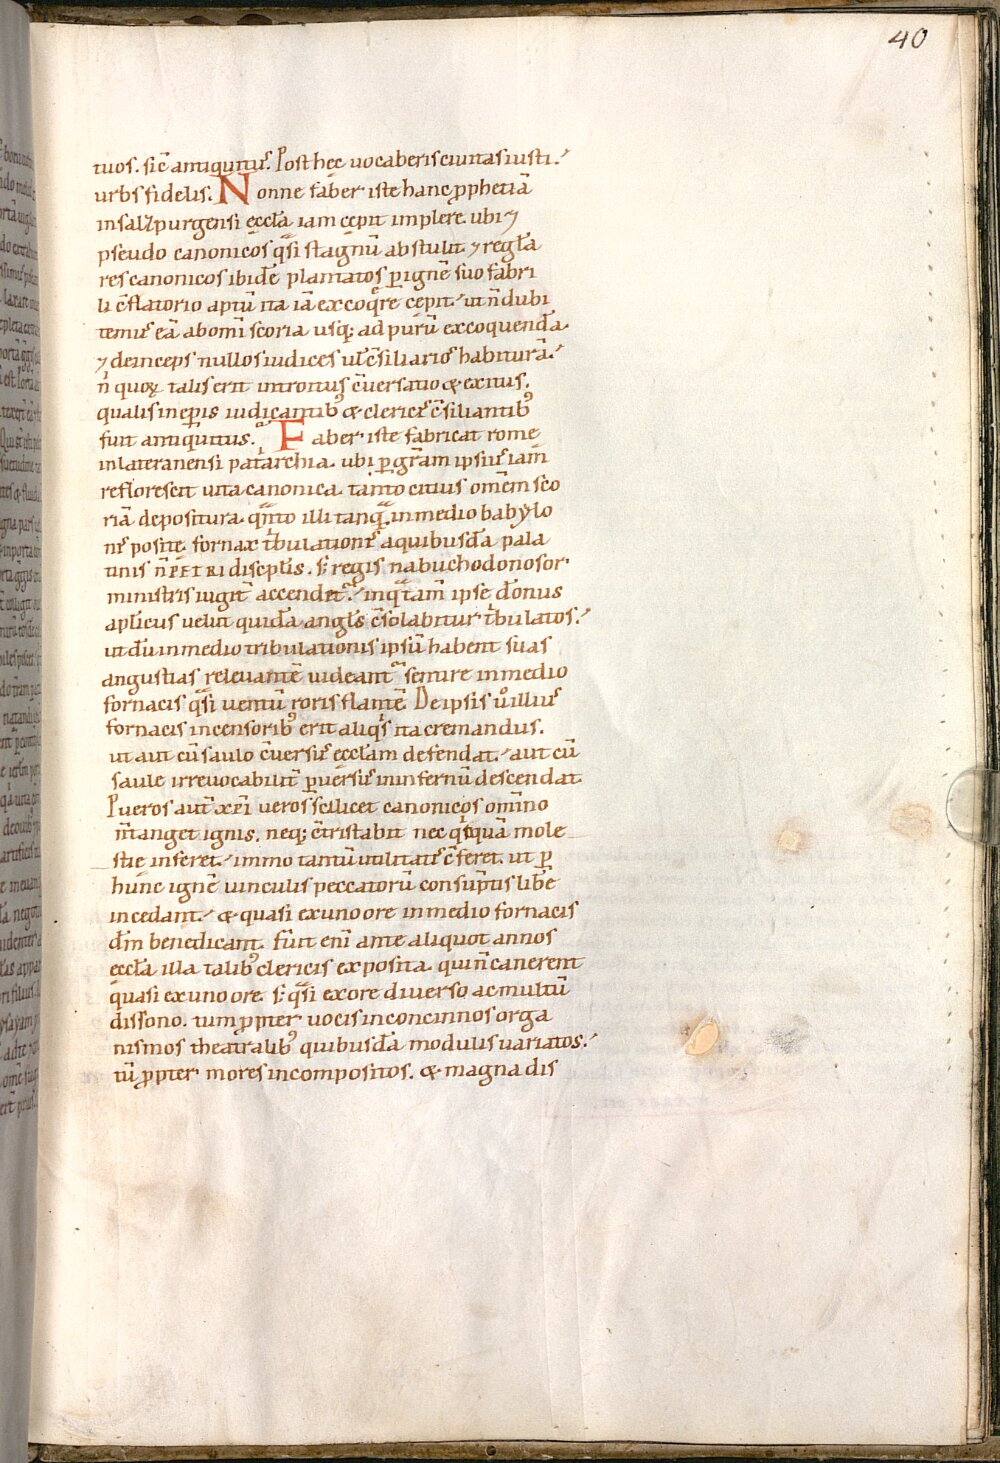 40
tuos. sic̄ antiquitus. Post hęc uocaberis ciuitas iusti.
urbs fidelis. Nonne faber iste hanc ꝓphetiā
in salzpurgensi ęccła iam cępit implere. ubi ⁊
pseudo canonicos qͣsi stagnū abstulit. ⁊ regła
res canonicos ibidē plantatos ꝑ ignē suo fabri
li c̄flatorio aptū ita iā excoqͣre cępit. ut n̄ dubi
temus eā ab om̄i scoria usq; ad purū excoquendā.
⁊ deinceps nullos iudices ul̄ c̄siliarios habiturā.
n̄ quoꝝ talis erit introitus c̄uersatio & exitus.
qualis in ep̄is iudicantib; & clericis c̄siliantib;
fuit antiquitus. Faber iste fabricat rome
in lateranensi pat̄archia. ubi ꝑ gr̄am ipsius iam
reflorescit uita canonica. tanto citius omēm sco
riā depositura. qͣnto illi tanqͣ. in medio babylo
nis positę fornax tͥbulationis a quibusdā pala
tinis n̄ PETRI discip̄lis. s; regis nabuchodonosor
ministris iugit̄ accendetͬ. inqͣ tam̄ ipse dōnus
ap̄licus uelut quidā angl̄s c̄solabitur tͥbulatos.
ut dū in medio tribulationis ipsū habent suas
angustias releuantē uideantͬ sentire in medio
fornacis qͣsi uentū roris flantē. De ipsis uͦ illius
fornacis incensorib; erit aliqͥs ita cremandus.
ut aut cū saulo c̄uersus ęccłam defendat. aut cū
saule irreuocabilit̄ ꝑuersus in infernū descendat.
Pueros aut̄ xp̄i ueros scilicet canonicos omīno
n̄ tanget ignis. neq; c̄tristabit nec qͥcqͣ mole
stię inferet. immo tantū utilitatis c̄feret. ut ꝑ
hunc ignē uinculis peccatorū consūptis libe
incedant. & quasi ex uno ore in medio fornacis
dm̄ benedicant. fuit enī ante aliquot annos
ęccła illa talib; clericis exposita. qui n̄ canerent
quasi ex uno ore. s; qͣsi ex ore diuerso ac multū
dissono. tum ꝓpter uocis inconcinnos orga
nismos theatralib; quibusdā modulis uariatos.
tū ꝓpter mores incompositos. & magna dis